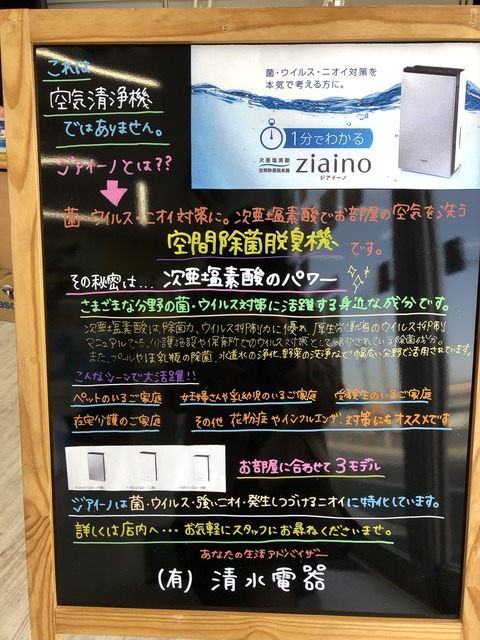 これは
空気清浄機
ではありません。
ジアイーノとは??
菌・ウイルス・ニオイ対策を
本気で考える方に。
1分でわかる
次亜塩素酸
空間除菌脱臭機
ziaino
ジアイーノ
菌・ウイルス・ニオイ対策に。次亜塩素酸でお部屋の空気を洗う
空間除菌脱臭機です。
その秘密は… 次亜塩素酸のパワー
さまざまな分野の菌・ウイルス対策に活躍する身近な成分です。
次亜塩素酸は、除菌力、ウイルス抑制力に優れ、厚生労働省のウイルス抑制
マニュアルでも、介護施設や保育所でのウイルス対策として紹介されている除菌成分。
また、プールやほ乳瓶の除菌、水道水の浄化、野菜の洗浄など幅広い分野で活用されています。
こんなシーンで大活躍!!
ペットのいるご家庭 妊婦さんや乳幼児のいるご家庭 受験生のいるご家庭
在宅介護のご家庭 その他 花粉症やインフルエンザ対策にもオススメです。
お部屋に合わせて3モデル
ジアイーノは菌・ウイルス・強いニオイ・発生しつづけるニオイに特化しています。
詳しくは店内へ… お気軽にスタッフにお尋ねくださいませ。
あなたの生活アドバイザー
(有) 清水電器